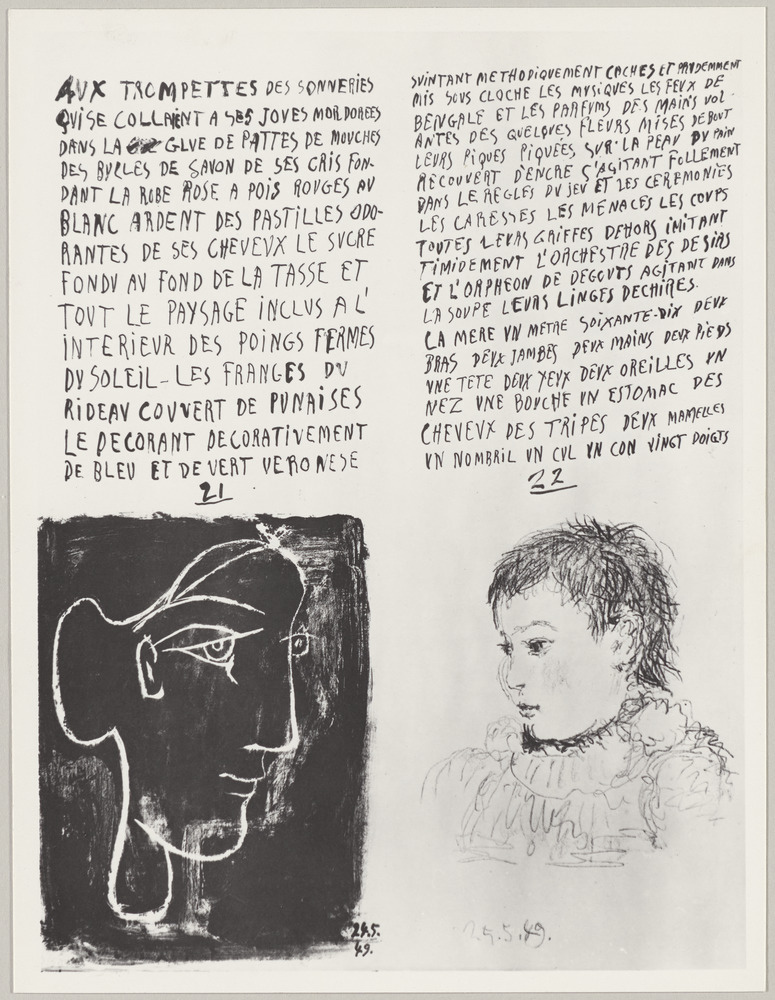 AUX TROMPETTES DES SONNERIES
QUI SE COLLAIENT A SES JOUES MORDOREES
DANS LA GLUE DE PATTES DE MOUCHES
DES BULLES DE SAVON DE SES CRIS FON-
DANT LA ROBE ROSE A POIS ROUGES AU
BLANC ARDENT DES PASTILLES ODO-
RANTES DE SES CHEVEUX LE SUCRE
FONDU AU FOND DE LA TASSE ET
TOUT LE PAYSAGE INCLUS A L'
INTERIEUR DES POINGS FERMES
DU SOLEIL - LES FRANGES DU
RIDEAU COUVERT DE PUNAISES
LE DECORANT DECORATIVEMENT
DE BLEU ET DE VERT VERONESE
21
24.5.
49.
SUINTANT METHODIQUEMENT CACHES ET PRUDEMMENT
MIS SOUS CLOCHE LES MUSIQUES LES FEUX DE
BENGALE ET LES PARFUMS DES MAINS VOL-
ANTES DES QUELQUES FLEURS MISES DEBOUT
LEURS PIQUES PIQUÉES SUR LA PEAU DU PAIN
RECOUVERT D'ENCRE S'AGITANT FOLLEMENT
DANS LE REGLES DU JEU ET LES CEREMONIES
LES CARESSES LES MENACES LES COUPS
TOUTES LEURS GRIFFES DEHORS IMITANT
TIMIDEMENT L'ORCHESTRE DES DESIRS
ET L'ORPHEON DE DEGOUTS AGITANT DANS
LA SOUPE LEURS LINGES DECHIRES.
LA MERE UN METRE SOIXANTE-DIX DEUX
BRAS DEUX JAMBES DEUX MAINS DEUX PIEDS
UNE TETE DEUX YEUX DEUX OREILLES UN
NEZ UNE BOUCHE UN ESTOMAC DES
CHEVEUX DES TRIPES DEUX MAMELLES
UN NOMBRIL UN CUL UN CON VINGT DOIGTS
22
24.5.49.